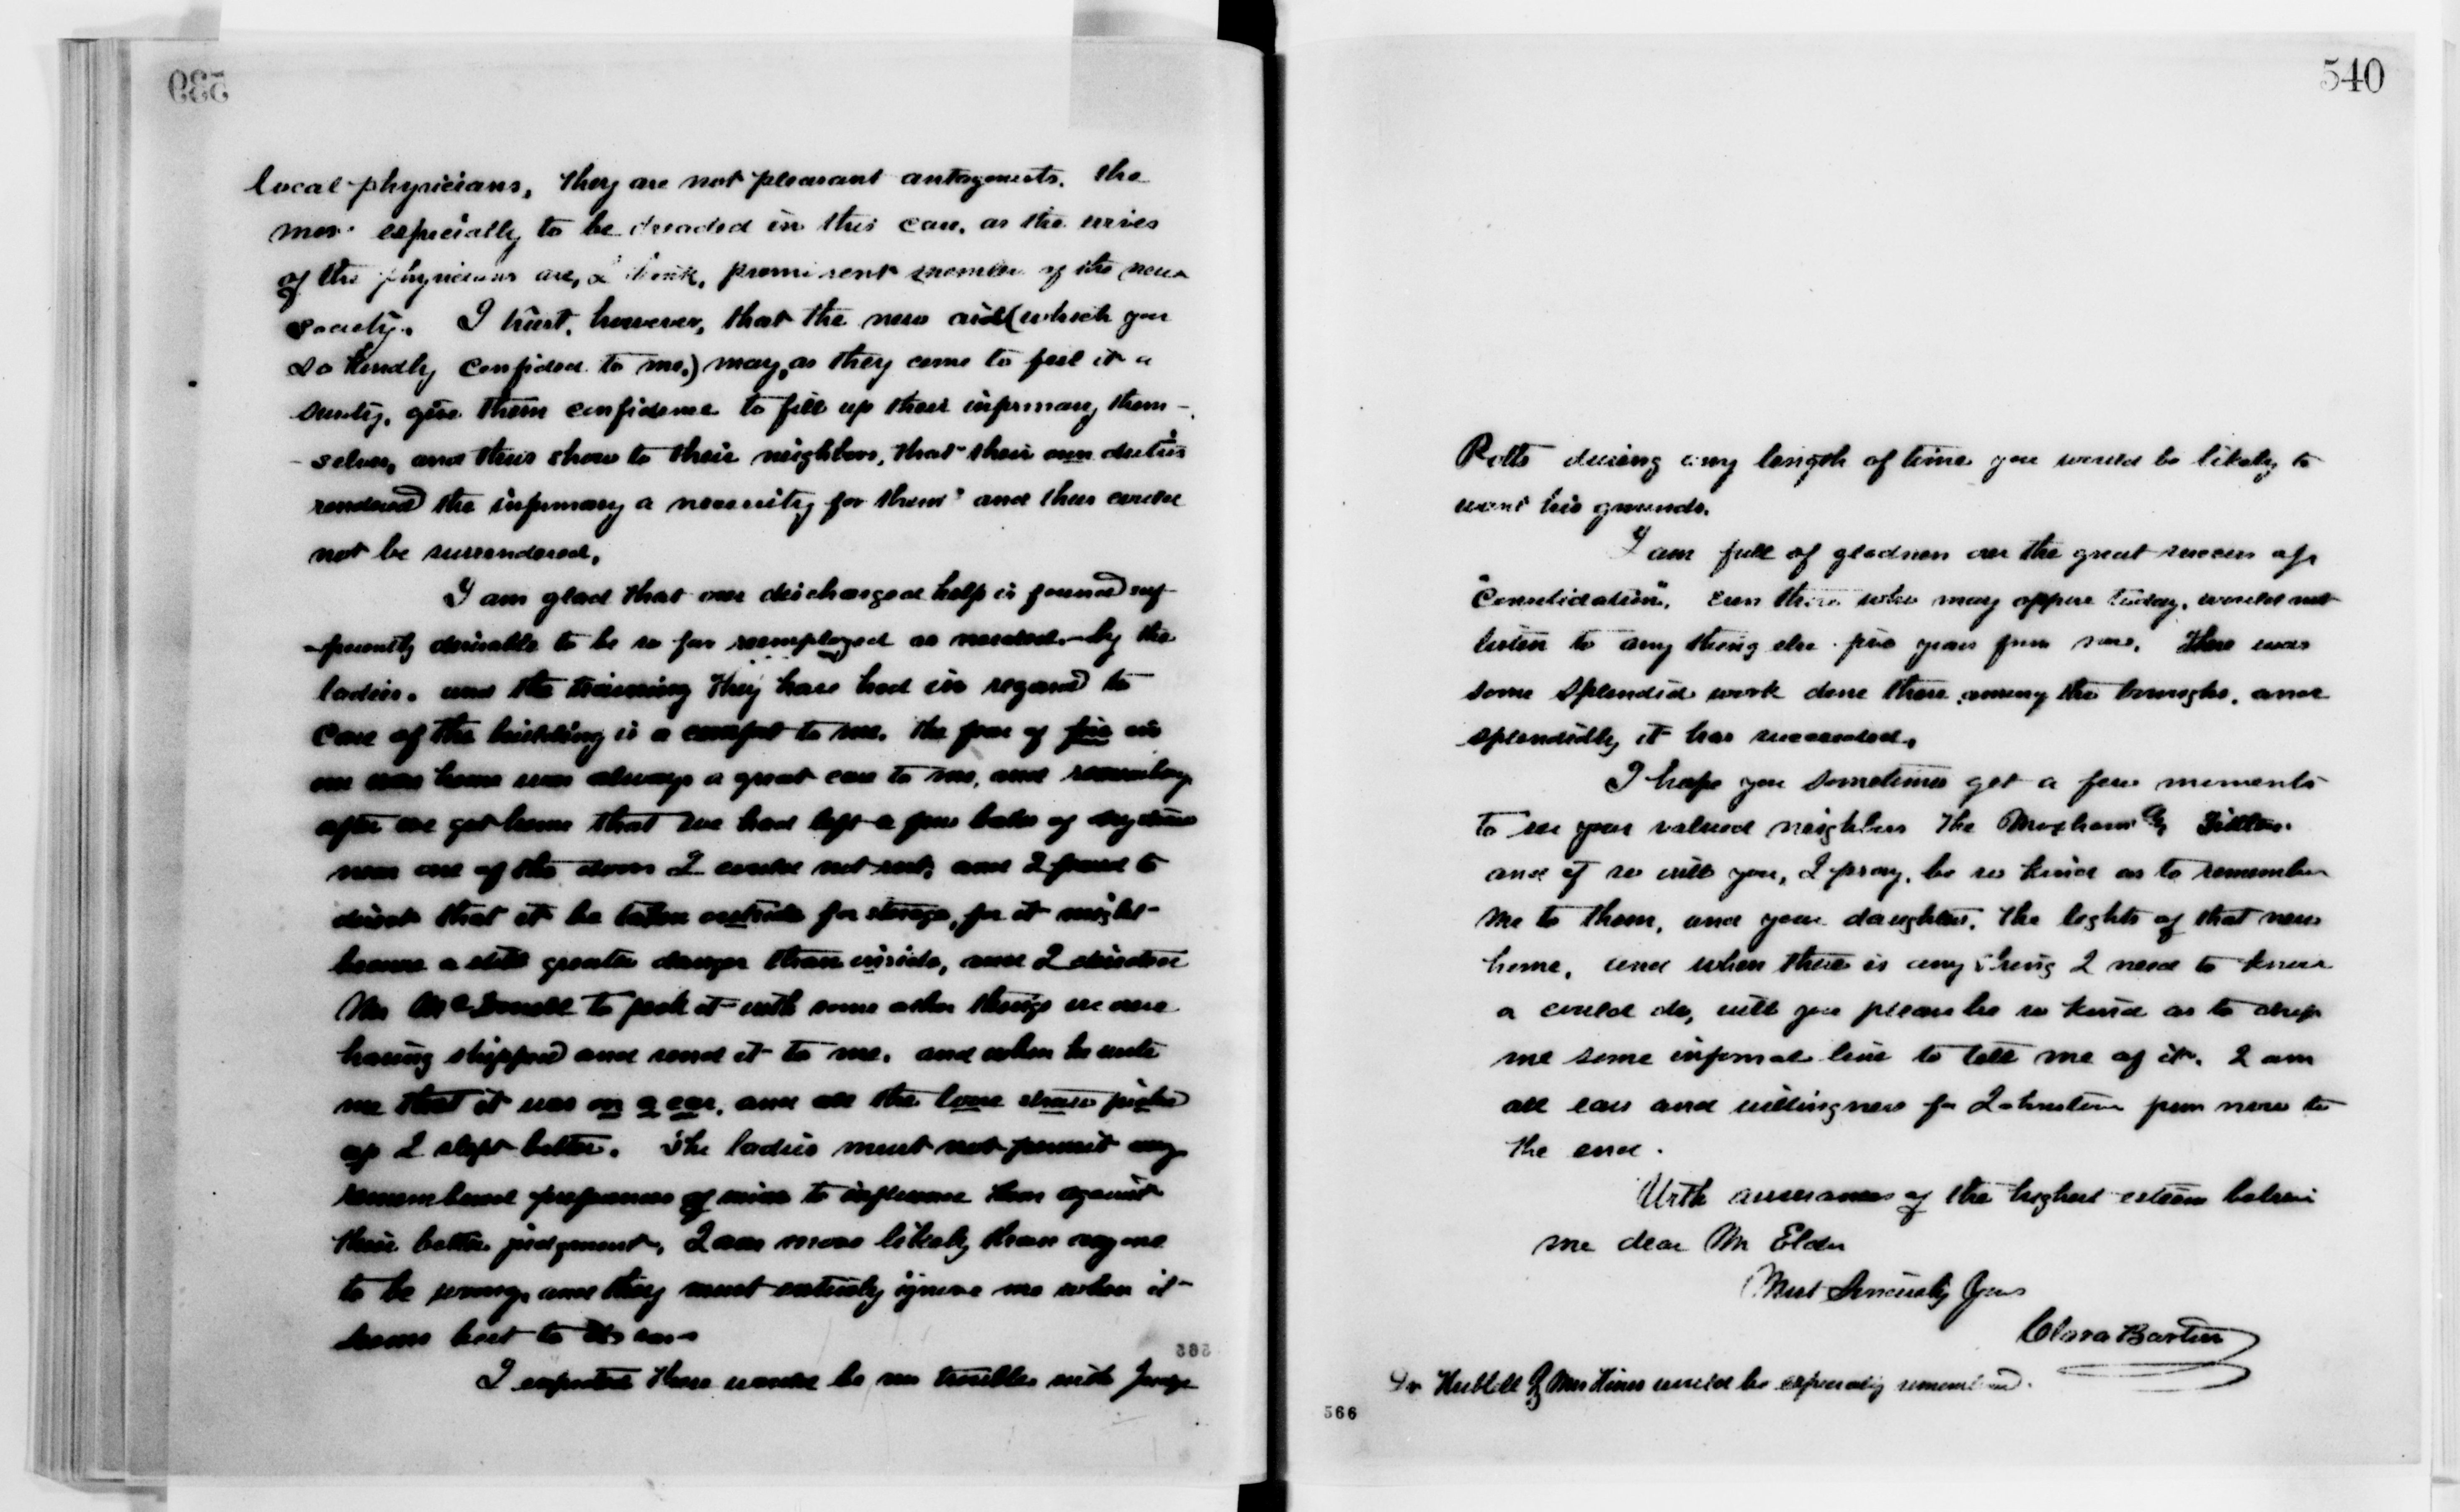 539
local physicians, they are not pleasant antagonists. The
more especially to be dreaded in this case, as the wives
of the physicians are, I think, prominent members of the new
Society. I trust, however, that the new aid (which you
so kindly confided to me,) may, as they come to feel it a
surety, give them confidence to fill up their infirmary them-
-selves, and thus show to their neighbors, that their own duties
rendered the infirmary a necessity for them and thus could
not be surrendered.
I am glad that our discharged help is found suf-
-ficiently desirable to be so far reemployed as needed by the
ladies. and the training they have had in regard to
care of the building is a comfort to me. The fear of fire in
our was always a great care to me, and remembering
after we got home that we had left a few bales of
near one of the doors I could not rest, and I to
direct that it be taken outside for storage, for it might
become a still greater danger than inside, and I directed
Mr McDowell to pack it with some other things we were
having shipped and send it to me. and when he wrote
me that it was on a car, and all the loose straw picked
up I slept better. The ladies must not permit any
remembered preferences of mine to influence them against
their better judgment, I am more likely than anyone
to be wrong, and they must entirely ignore me when it
seems best to do so
I expected there would be no trouble with Judge
565
540
Potts during any length of time you would be likely to
want his grounds.
I am full of gladness over the great success of
"Consolidation". Even those who may oppose today, would not
listen to any thing else five years from now. There was
some splendid work done there among the boroughs, and
splendidly it has succeeded.
I hope you sometimes get a few moments
to see your valued neighbors the Moxhams &
and if so will you, I pray, be so kind as to remember
me to them, and your daughters, the lights of that new
home, and when there is any thing I need to know
or could do, will you please be so kind as to drop
me some informal line to tell me of it. I am
all ears and willingness for Johnstown from now to
the end.
With assurances of the highest esteem believe
me dear Mr Elder
Most Sincerely Yours
Clara Barton
Dr Hubbell & Mrs Hines would be especially remembered.
566